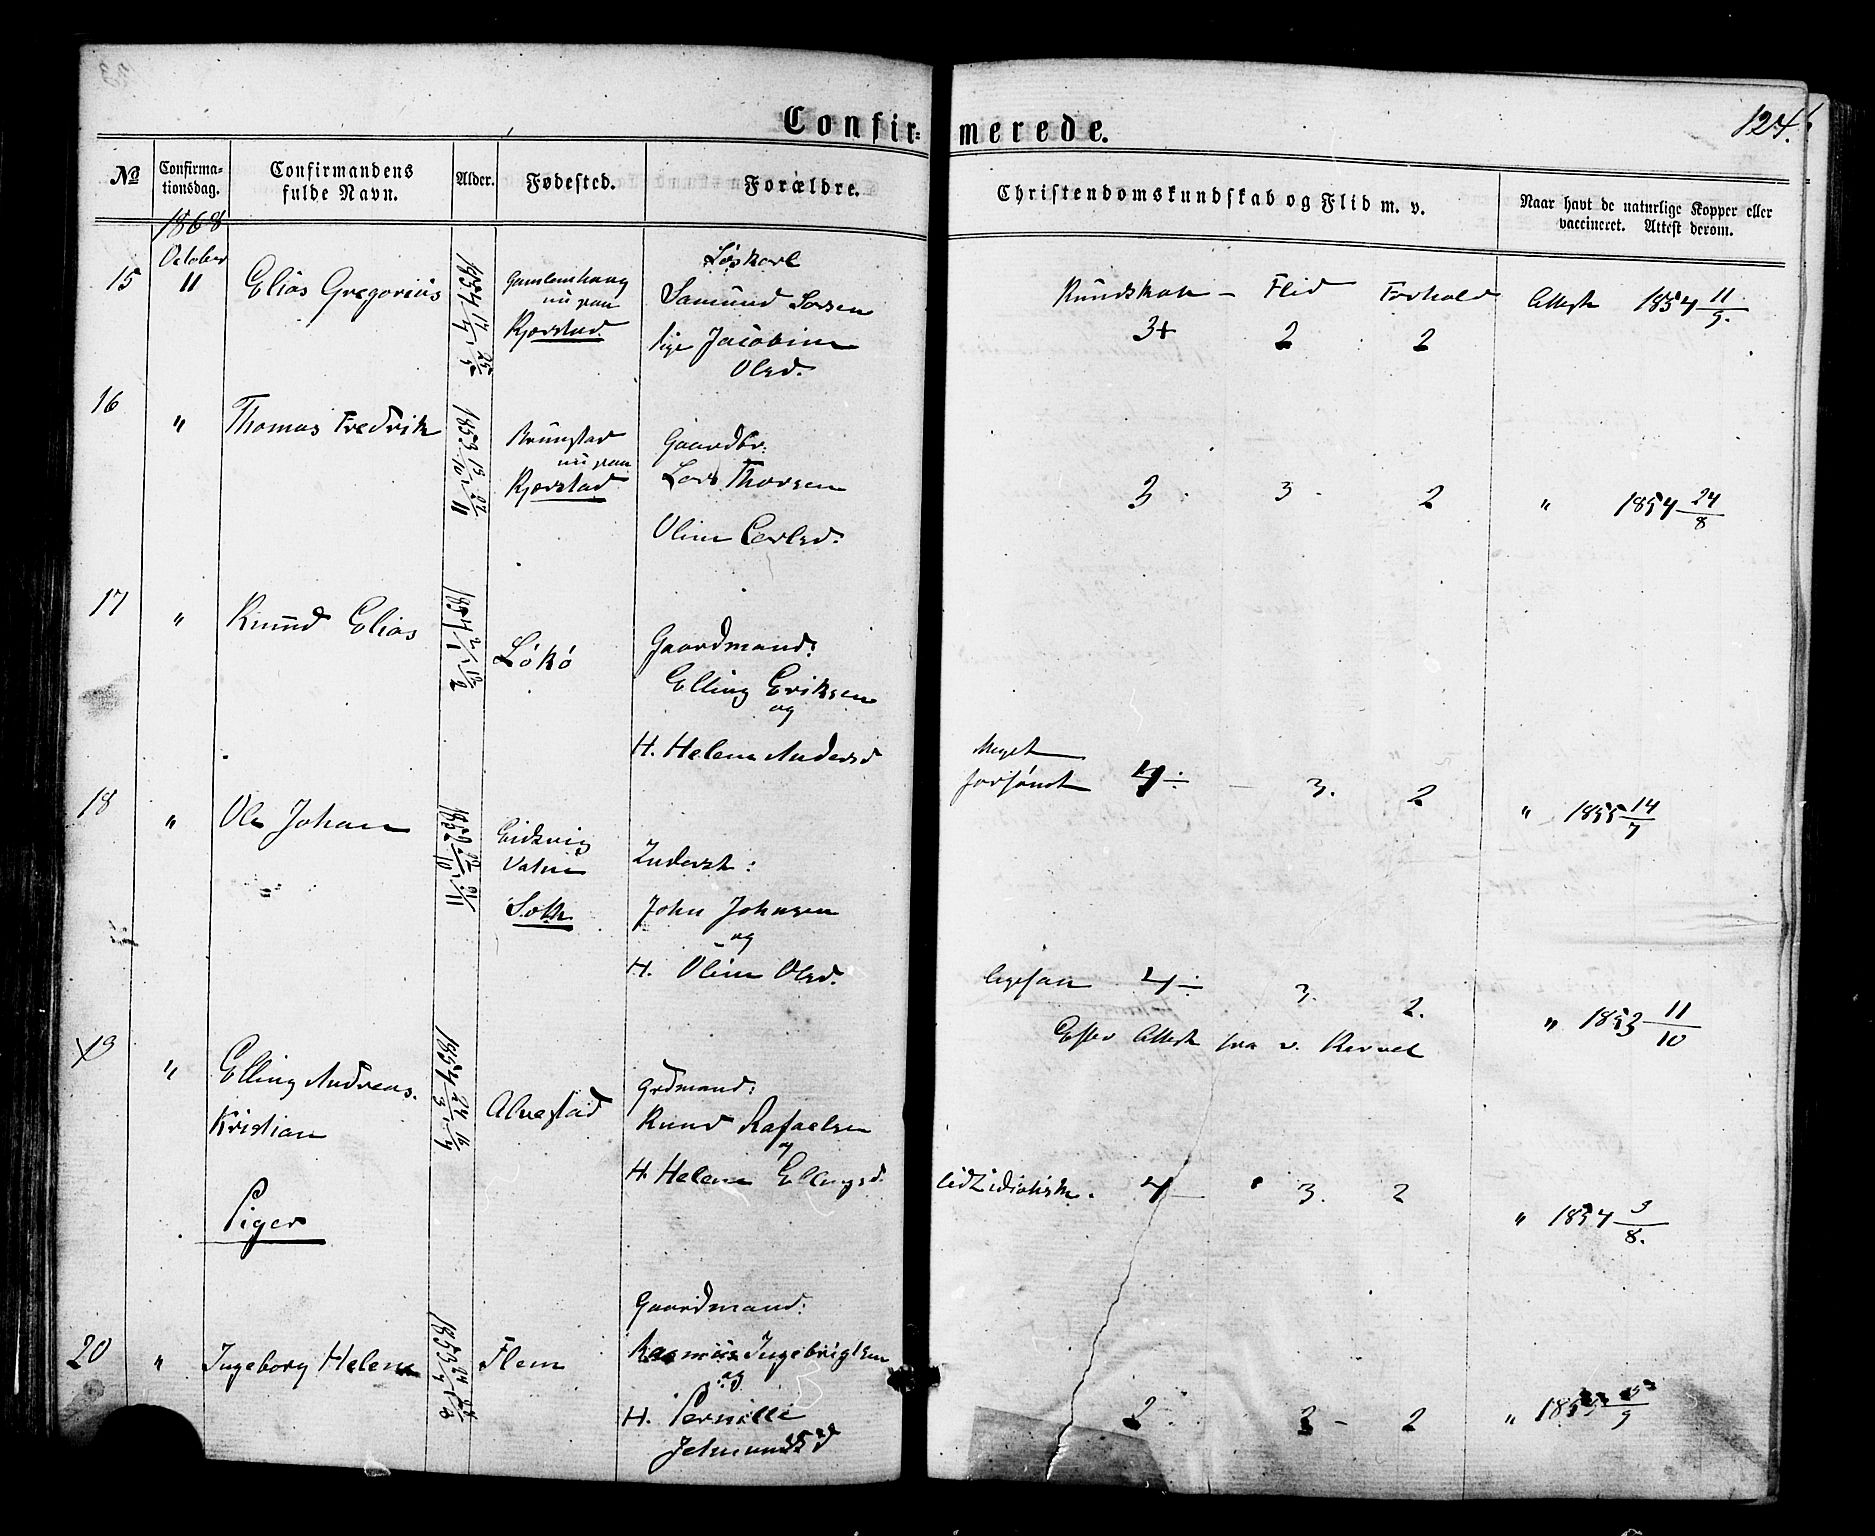 Confir=
merede.
124.
No
Confirma-
tionsdag.
Confirmandens
fulde Navn.
Alder.
Fødested.
Forældre.
Christendomskundskab og Flid m. v.
Naar havt de naturlige Kopper eller
vaccineret. Attest derom.
1868
October
15 11 Elias Gregorius
1854
nu paa
Kjærstad
Løskarl
Samund Larsen
Pige Jacobine
Olsd.
Kundskab - Flid Forhold
3+ 2 2
Attest 1854 11/9.
16 " Thomas Fredrik
1853
Brunstad
nu paa
Kjærstad
Gaardbr:
Lars Thorsen
Oline Carlsd.
3 3 2
" 1854 24/8
17 " Knud Elias
1854
Løkø
Gaardmand:
Elling Eriksen
og
H. Helene Andersd
Meget
forsømt 4÷ - 3. 2
" 1855 14/7
18 " Ole Johan
1852
Eidsvig
Vatne
Inderst:
John Johnsen
og
H. Oline Olsd.
ligesaa 4÷ 3. 2.
Efter Attest fra
" 1853 11/10
19 " Elling Andreas
Kristian
1854 24/3
Alvestad
Grdmand:
Knud Rafaelsen
og
H. Helene Ellingsd.
lidt idiotisk. 4 3. 2
" 1854 3/8.
Piger
20 " Ingeborg Helene
1853
Flem
Gaardmand:
Rasmus Ingebrigtsen
og
H. Pernille
Jetmundsd
2. 2 - 2
"